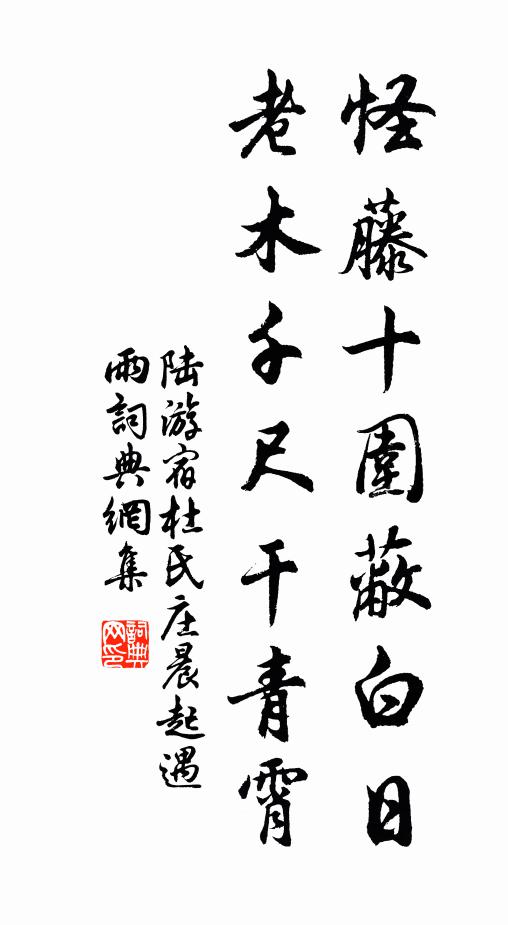 怪藤十圍蔽白日
老木千尺干青霄
陆游宿杜氏庄晨起遇
雨詞典網集
詞典网印